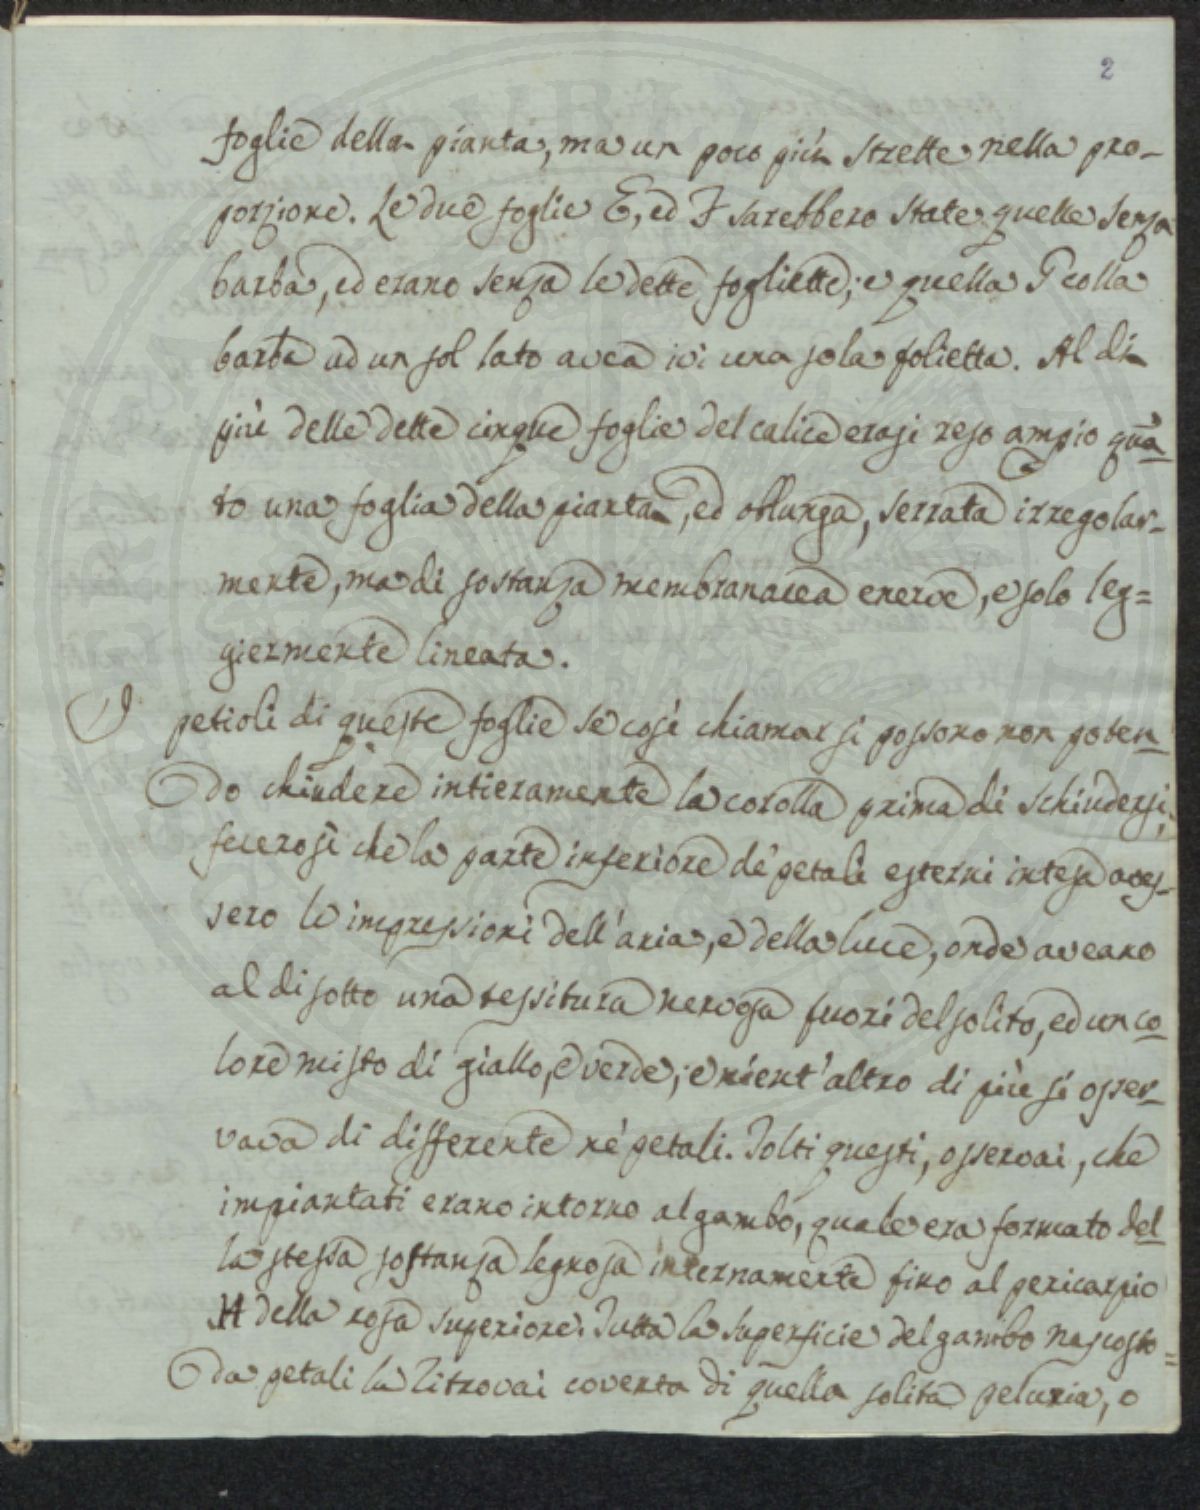 2
foglie della pianta, ma un poco più strette nella pro-
porzione. Le due foglie E, ed F sarebbero state quelle senza
barba, ed erano senza le dette fogliette; e quella G colla
barba ad un sol lato avea ivi una sola folietta. Al di
più delle dette cinque foglie del calice erasi reso ampio quã
to una foglia della pianta, ed oblunga, serrata irregolar-
mente, ma di sostanza membranacea enerve, e solo leg=
giermente lineata.
I petioli di queste foglie se così chiamar si possono non poten
do chiudere intieramente la corolla prima di schiudersi,
fecerosi che la parte inferiore de' petali esterni intesa aves-
sero le impressioni dell'aria, e della luce, onde aveano
al di sotto una tessitura nervosa fuori del solito, ed un co
lore misto di giallo, e verde; e nient'altro di più si osser
vava di differente ne' petali. Tolti questi, osservai, che
impiantati erano intorno al gambo, quale era formato del
la stessa sostanza legnosa internamente fino al pericarpio
H della rosa superiore. Tutta la superficie del gambo nascosto =
da petali la ritrovai coverta di quella solita peluria, o